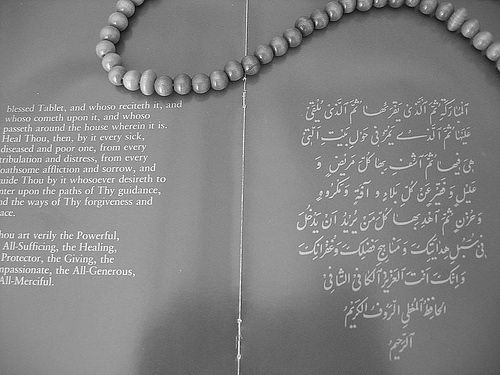 blessed Tablet, and whoso reciteth it, and
whoso cometh upon it, and whoso
passeth around the house wherein it is.
Heal Thou, then, by it every sick,
diseased and poor one, from every
tribulation and distress, from every
loathsome affliction and sorrow, and
uide Thou by it whosoever desireth to
nter upon the paths of Thy guidance,
nd the ways of Thy forgiveness and
ace.
hou art verily the Powerful,
All-Sufficing, the Healing,
Protector, the Giving, the
mpassionate, the All-Generous,
All-Merciful.
ثم الذي يقرئها ثم الذي يلقي
عليها ثم الذي يمر في حول بيت التي
هي فيها ثم اشف بها كل مريض و
عليل و فقير عن كل بلاء و آفة و مكروه
و حزن ثم اهد بها كل من يريد ان يدخل
في سبل هدايتك و مناهج فضلك و غفرانك
و انك انت العزيز الكافي الشافي
الحافظ المعطي الرؤف الكريم
الرحيم